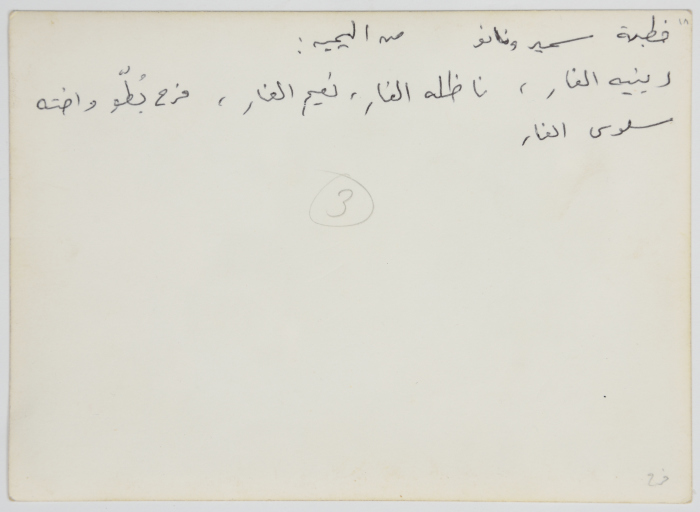 ١٨
خطبة سمير ونانو من اليمين :
رينيه الفار ، ناظله الفار ، نعيم الفار ، فرح بُطّو واخته
سلوى الفار
3